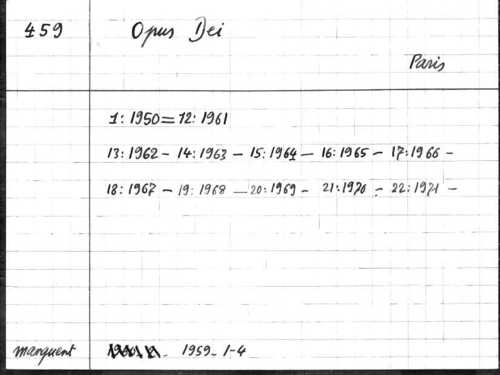 459 Opus Dei
Paris
1: 1950 = 12: 1961
13: 1962 - 14: 1963 - 15: 1964 - 16: 1965 - 17: 1966 -
18: 1967 - 19: 1968 - 20: 1969 - 21: 1970 - 22: 1971 -
manquent 1959- 1-4